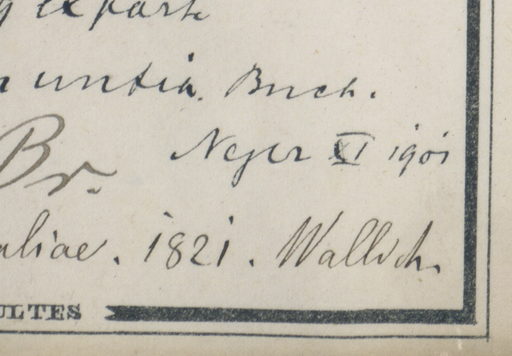 ex parte
untia. Buch.
Br. Neger XI 1901
aliae. 1821. Wallich.
ULTES